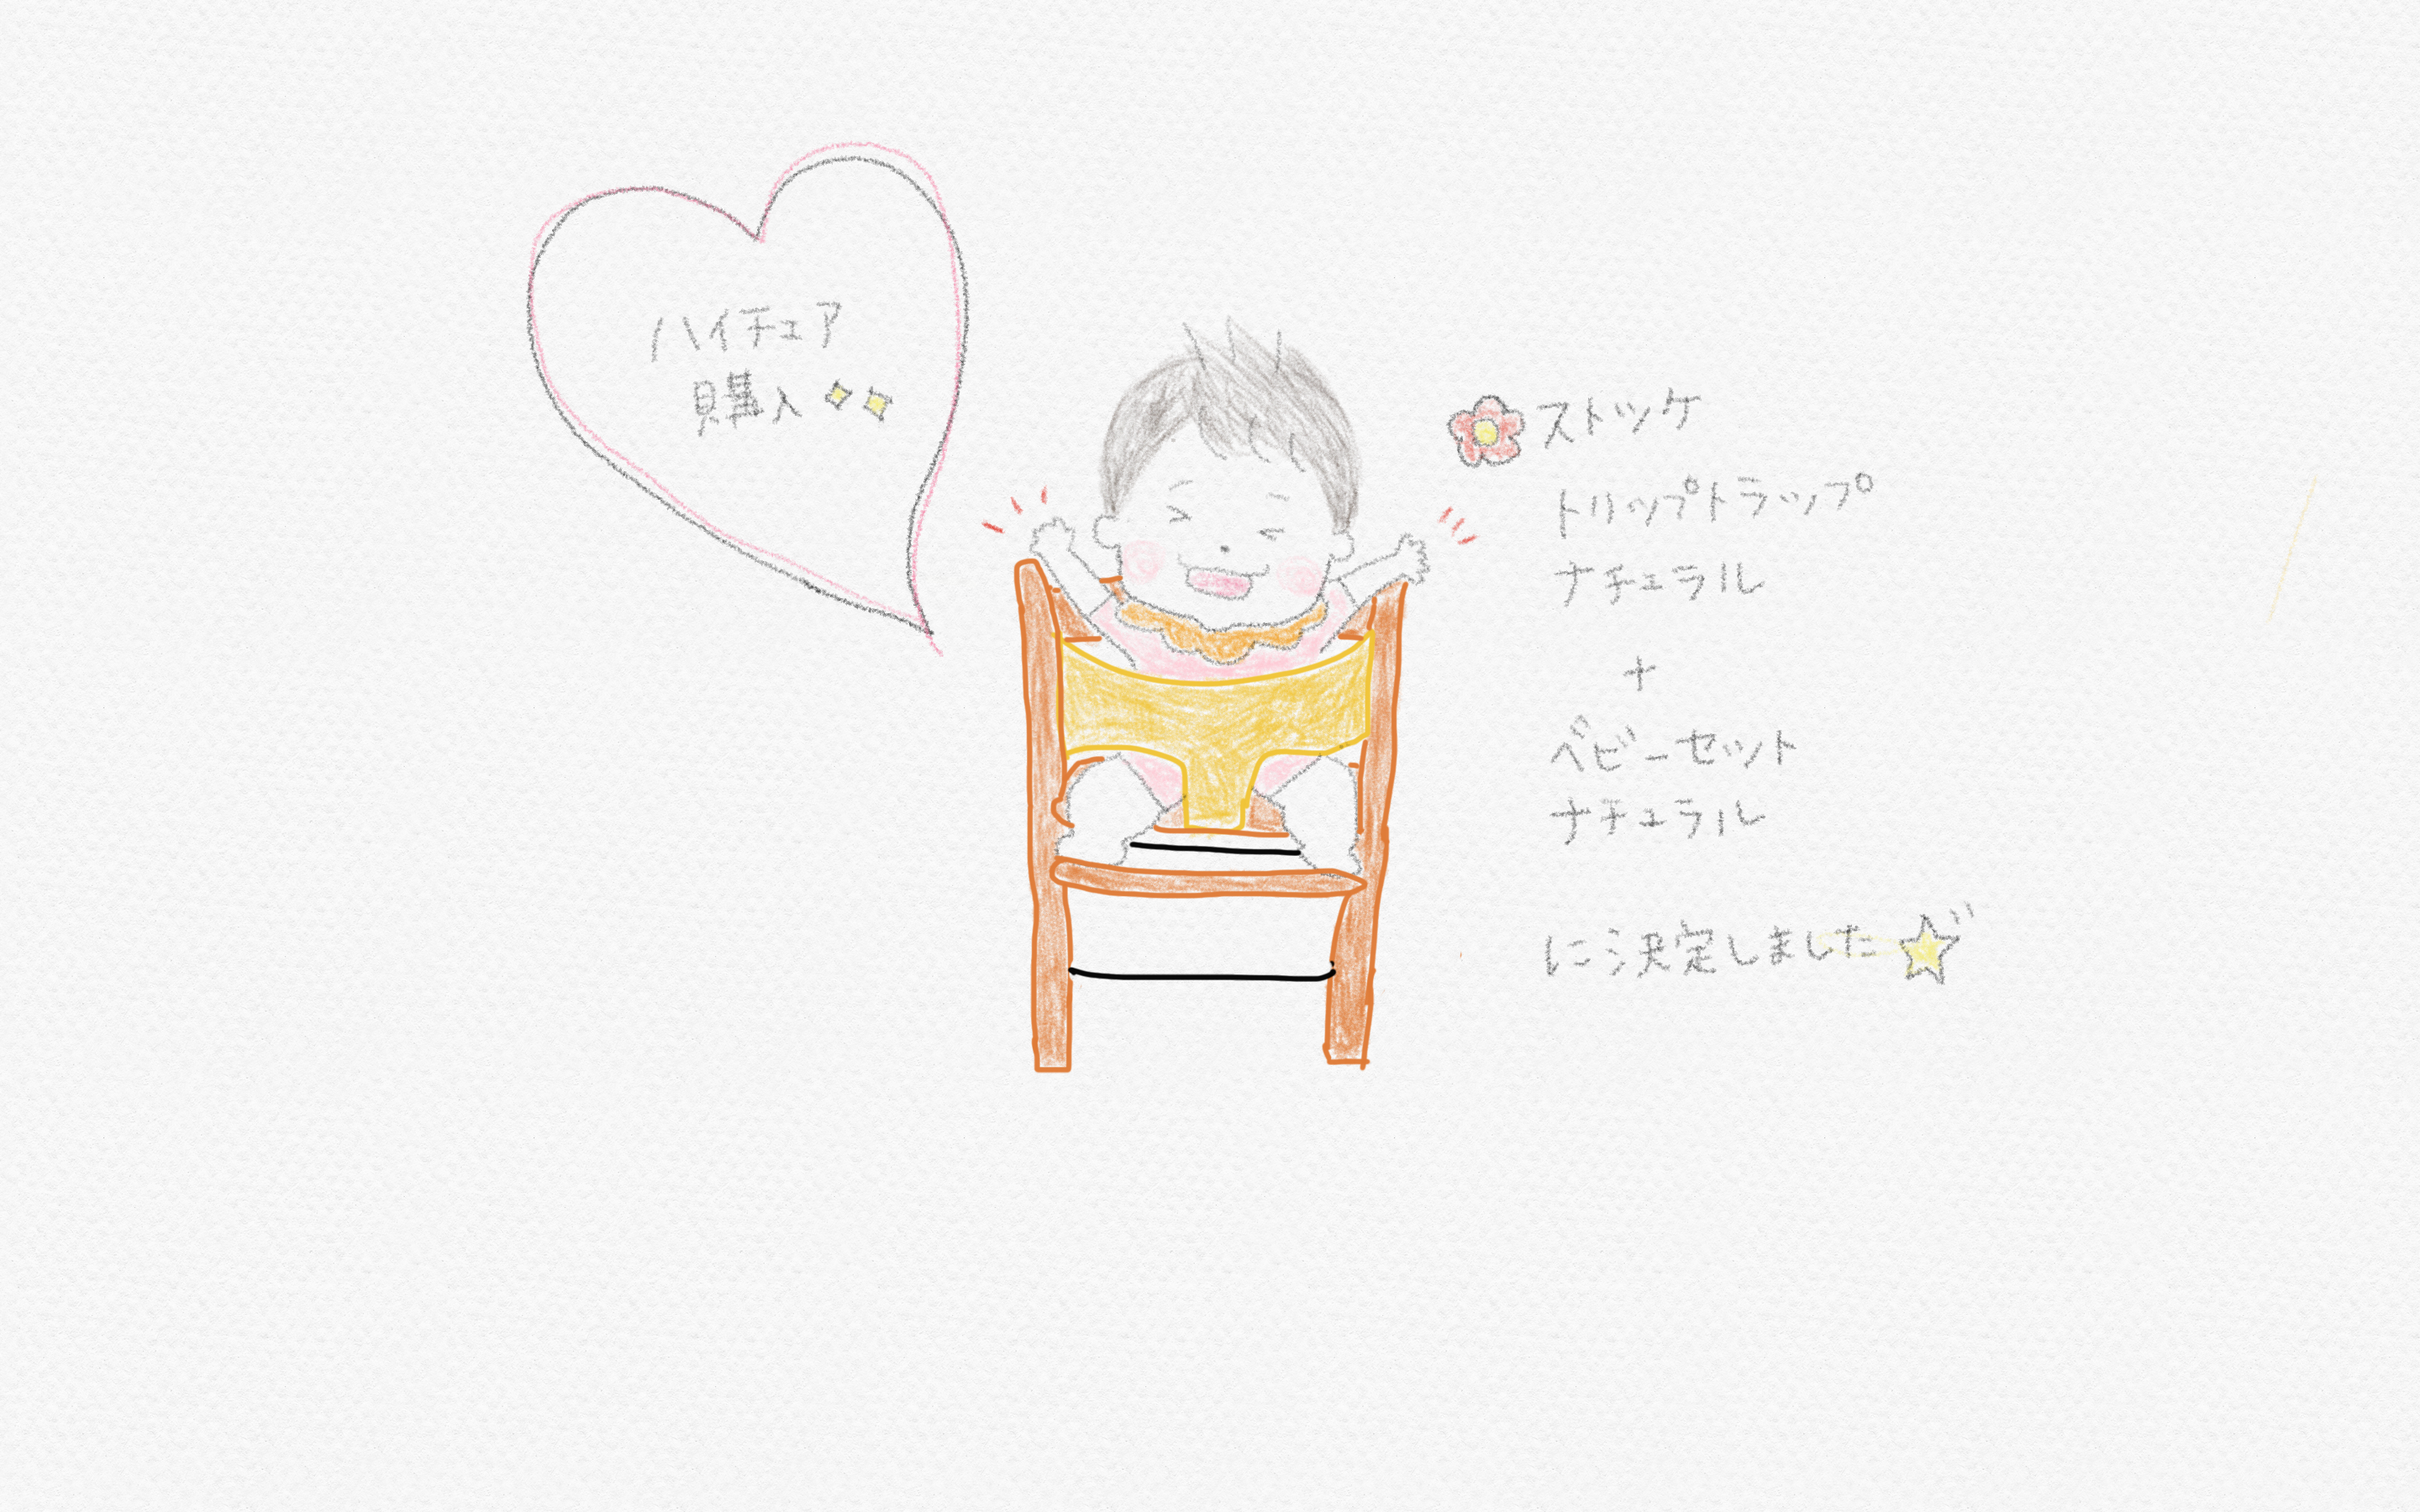 ハイチェア
購入
ストッケ
トリップトラップ
ナチュラル
+
ベビーセット
ナチュラル
に決定しました